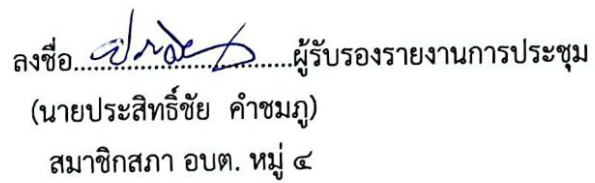 ลงชื่อ......................................ผู้รับรองรายงานการประชุม
(นายประสิทธิ์ชัย คำชมภู)
สมาชิกสภา อบต. หมู่ ๔